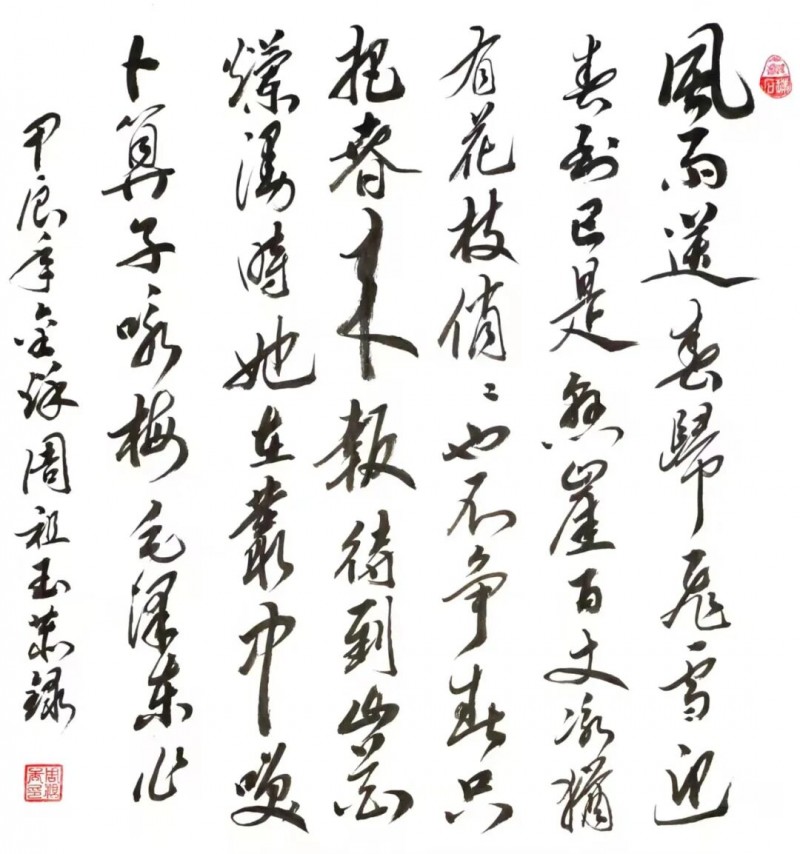 風雨送春歸飛雪迎
春到已是懸崖百丈冰猶
有花枝俏〻也不争春只
把春来報待到山花
爛漫時她在叢中咲
卜算子咏梅毛澤東作
甲辰年金秌周祖玉恭録